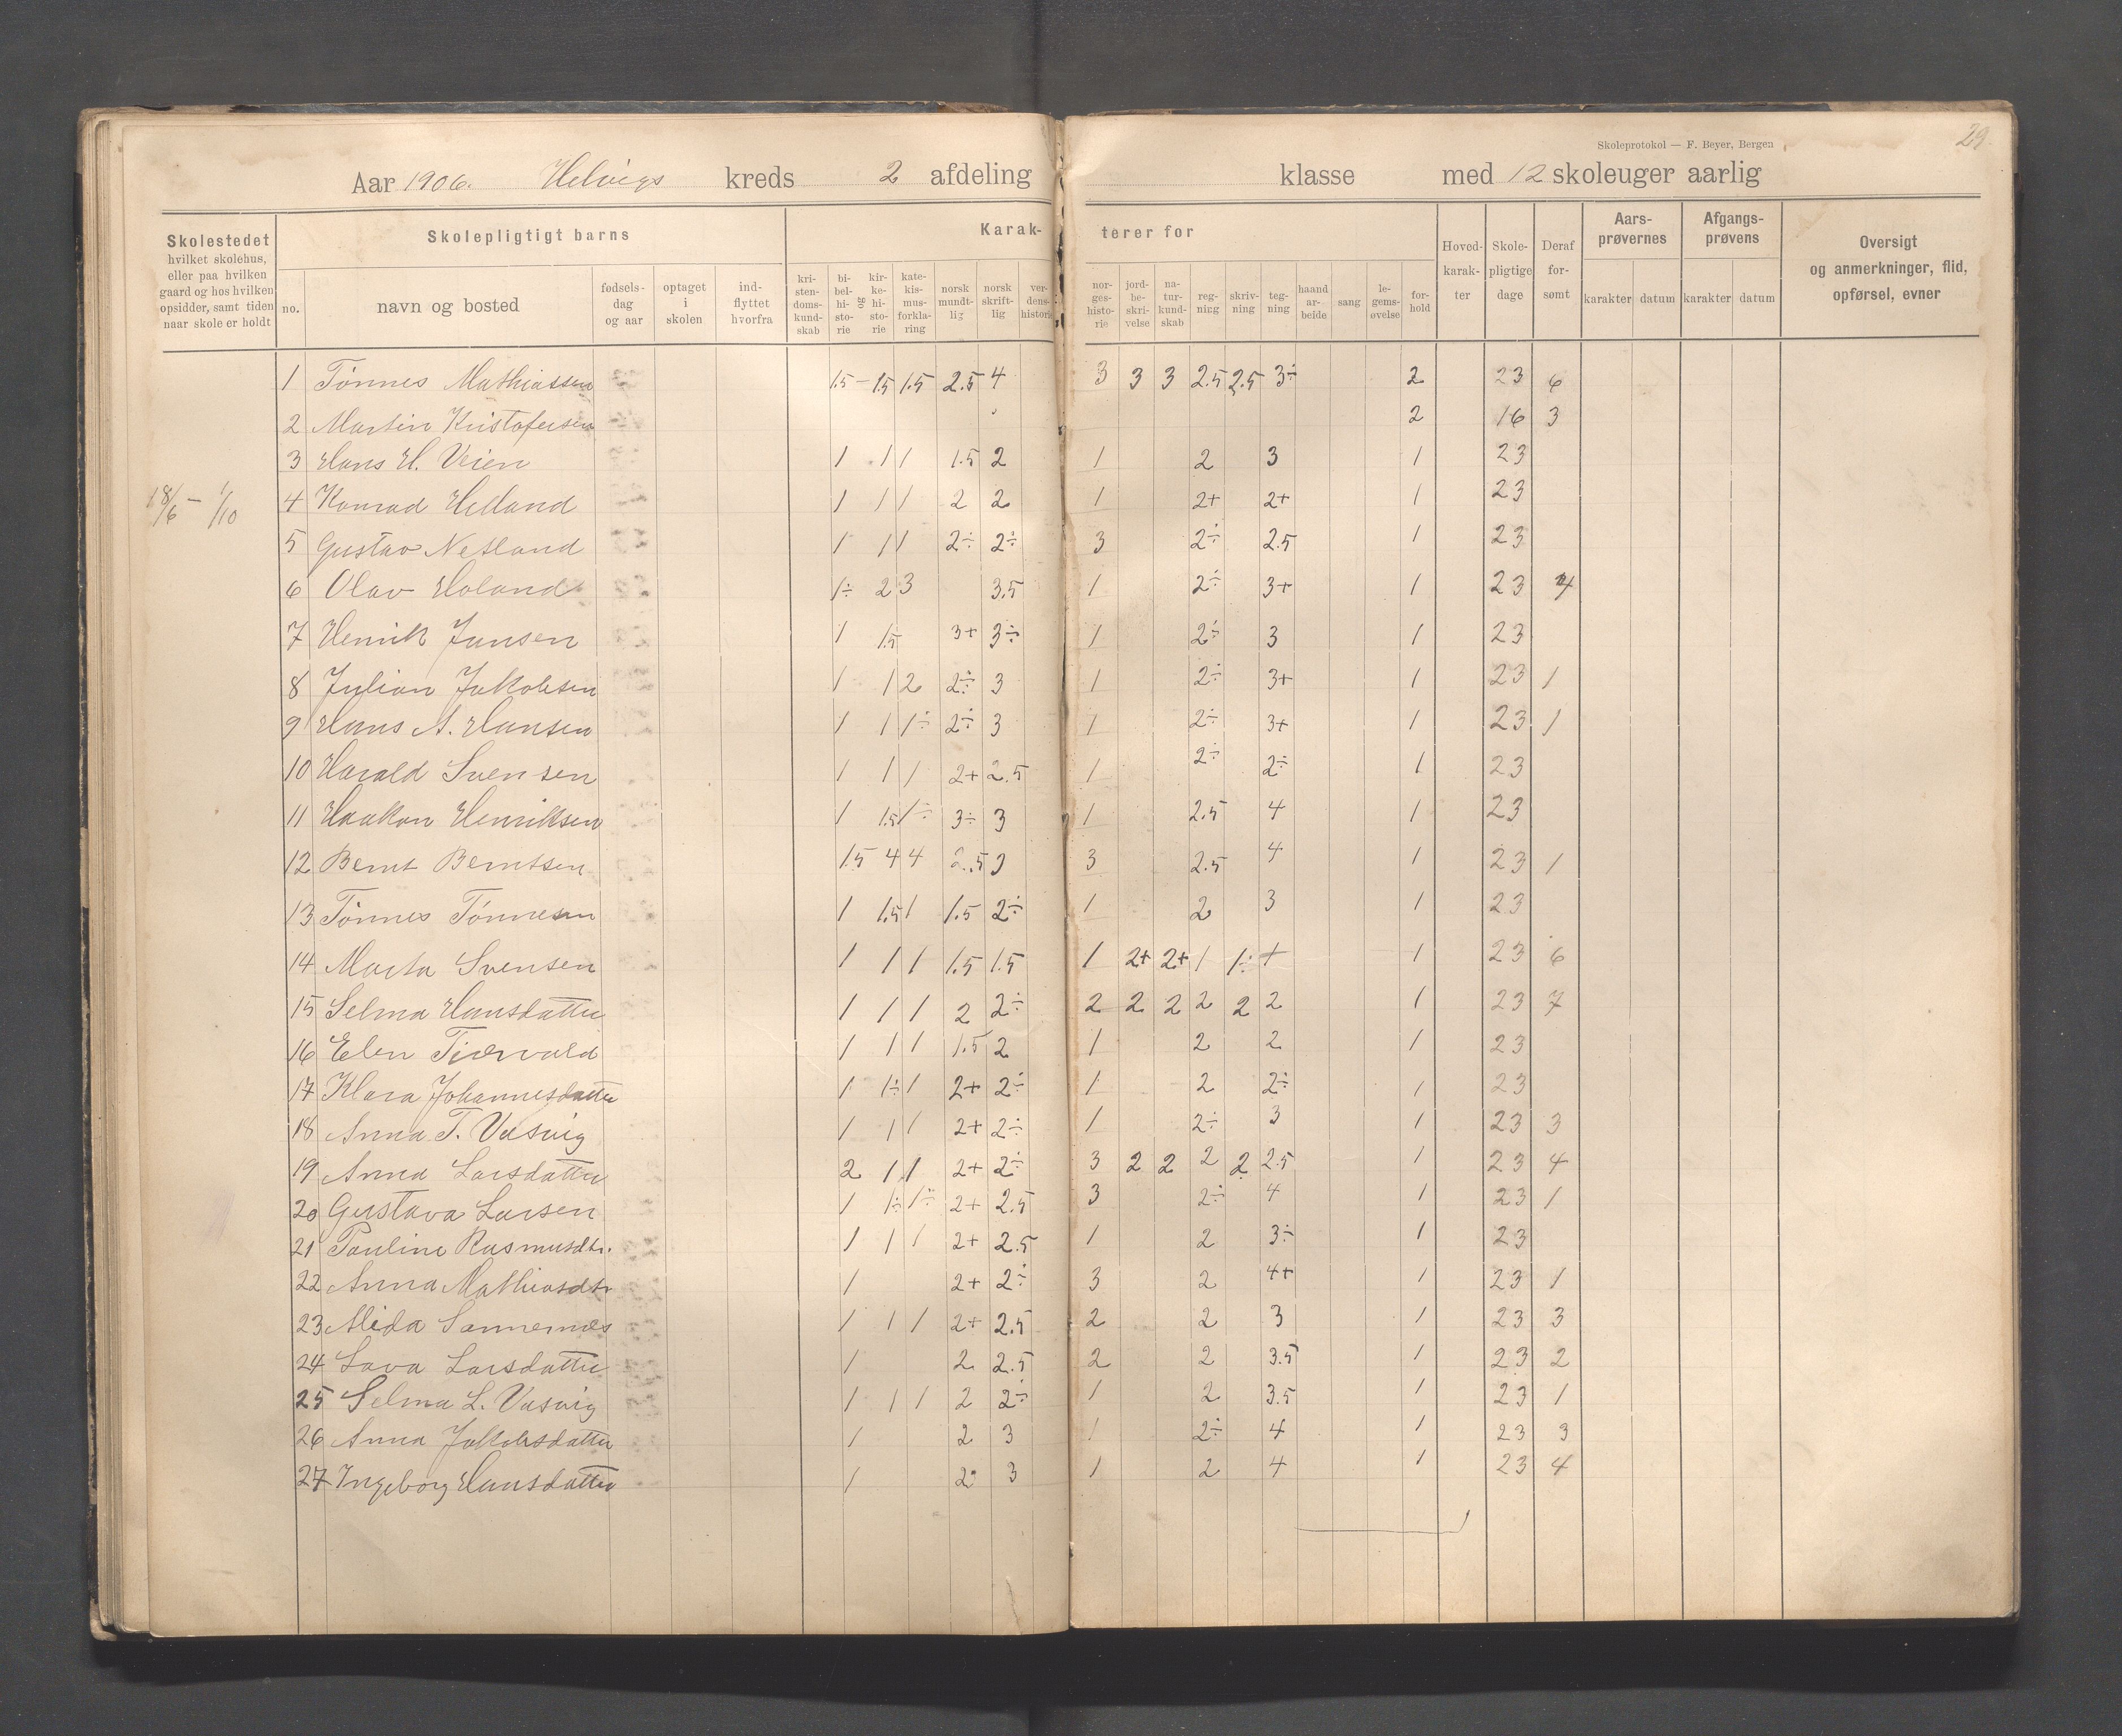 Skoleprotokol — F. Beyer, Bergen
29.
Aar 1906. Helvigs kreds 2 afdeling klasse med 12 skoleuger aarlig
Skolestedet hvilket skolehus, eller paa hvilken gaard og hos hvilken opsidder, samt tiden naar skole er holdt
Skolepligtigt barns
Karak- terer for
no.
navn og bosted
fødsels- dag og aar
optaget i skolen
ind- flyttet hvorfra
kri- sten- doms- kund- skab
bi- bel- hi- sto- rie
og
kir- ke- hi- sto- rie
kate- kis- mus- forkla- ring
norsk mundt- lig
norsk skrift- lig
ver- dens- historie
nor- ges- histo- rie
jord- be- skri- velse
na- tur- kund- skab
reg- ning
skriv- ning
teg- ning
haand ar- beide
sang
le- gems- øvelse
for- hold
Hoved- karak- ter
Skole- pligtige dage
Deraf for- sømt
Aars- prøvernes
karakter datum
Afgangs- prøvens
karakter datum
Oversigt og anmerkninger, flid, opførsel, evner
18/6 – 1/10
1 Tönnes Mathiassen 1.5 – 1.5 1.5 2.5 4 3 3 3 2.5 2.5 3÷ 2 23 6
2 Martin Kristofersen 2 16 3
3 Hans H. Veien 1 1 1 1.5 2 1 2 3 1 23
4 Konrad Helland 1 1 1 2 2 1 2+ 2+ 1 23
5 Gustav Netland 1 1 1 2÷ 2÷ 3 2÷ 2.5 1 23
6 Olav Holand 1÷ 2 3 3.5 1 2÷ 3+ 1 23 4
7 Henrik Jansen 1 1.5 3+ 3÷ 1 2÷ 3 1 23
8 Julian Jakobsen 1 1 2 2÷ 3 1 2÷ 3+ 1 23 1
9 Hans A. Hansen 1 1 1÷ 2÷ 3 1 2÷ 3+ 1 23 1
10 Harald Svensen 1 1 1 2+ 2.5 1 2÷ 2÷ 1 23
11 Haakon Henriksen 1 1.5 1÷ 3÷ 3 1 2.5 4 1 23
12 Bernt Berntsen 1.5 4 4 2.5 3 3 2.5 4 1 23 1
13 Tönnes Tönnesen 1 1.5 1 1.5 2÷ 1 2 3 1 23
14 Marta Svensen 1 1 1 1.5 1.5 1 2+ 2+ 1 1÷ 1 1 23 6
15 Selma Hansdatter 1 1 1 2 2÷ 2 2 2 2 2 2 1 23 7
16 Elen 1 1 1 1.5 2 1 2 2 1 23
17 Klara Johannesdatter 1 1÷ 1 2+ 2÷ 1 2 2÷ 1 23
18 Anna T. Vasvig 1 1 1 2+ 2÷ 1 2÷ 3 1 23 3
19 Anna Larsdatter 2 1 1 2+ 2÷ 3 2 2 2 2 2.5 1 23 4
20 Gustava Larsen 1 1÷ 1÷ 2+ 2.5 3 2÷ 4 1 23 1
21 Pauline Rasmusdtr. 1 1 1 2+ 2.5 1 2 3÷ 1 23
22 Anna Mathiasdtr 1 2+ 2÷ 3 2 4+ 1 23 1
23 Alida Sannernæs 1 1 1 2+ 2.5 2 2 3 1 23 3
24 Lava Larsdatter 1 2 2.5 2 2 3.5 1 23 2
25 Selma L. Vasvig 1 1 1 2 2÷ 1 2 3.5 1 23 1
26 Anna Jakobsdatter 1 2 3 1 2÷ 4 1 23 3
27 Ingeborg Hansdatter 1 2 3 1 2 4 1 23 4